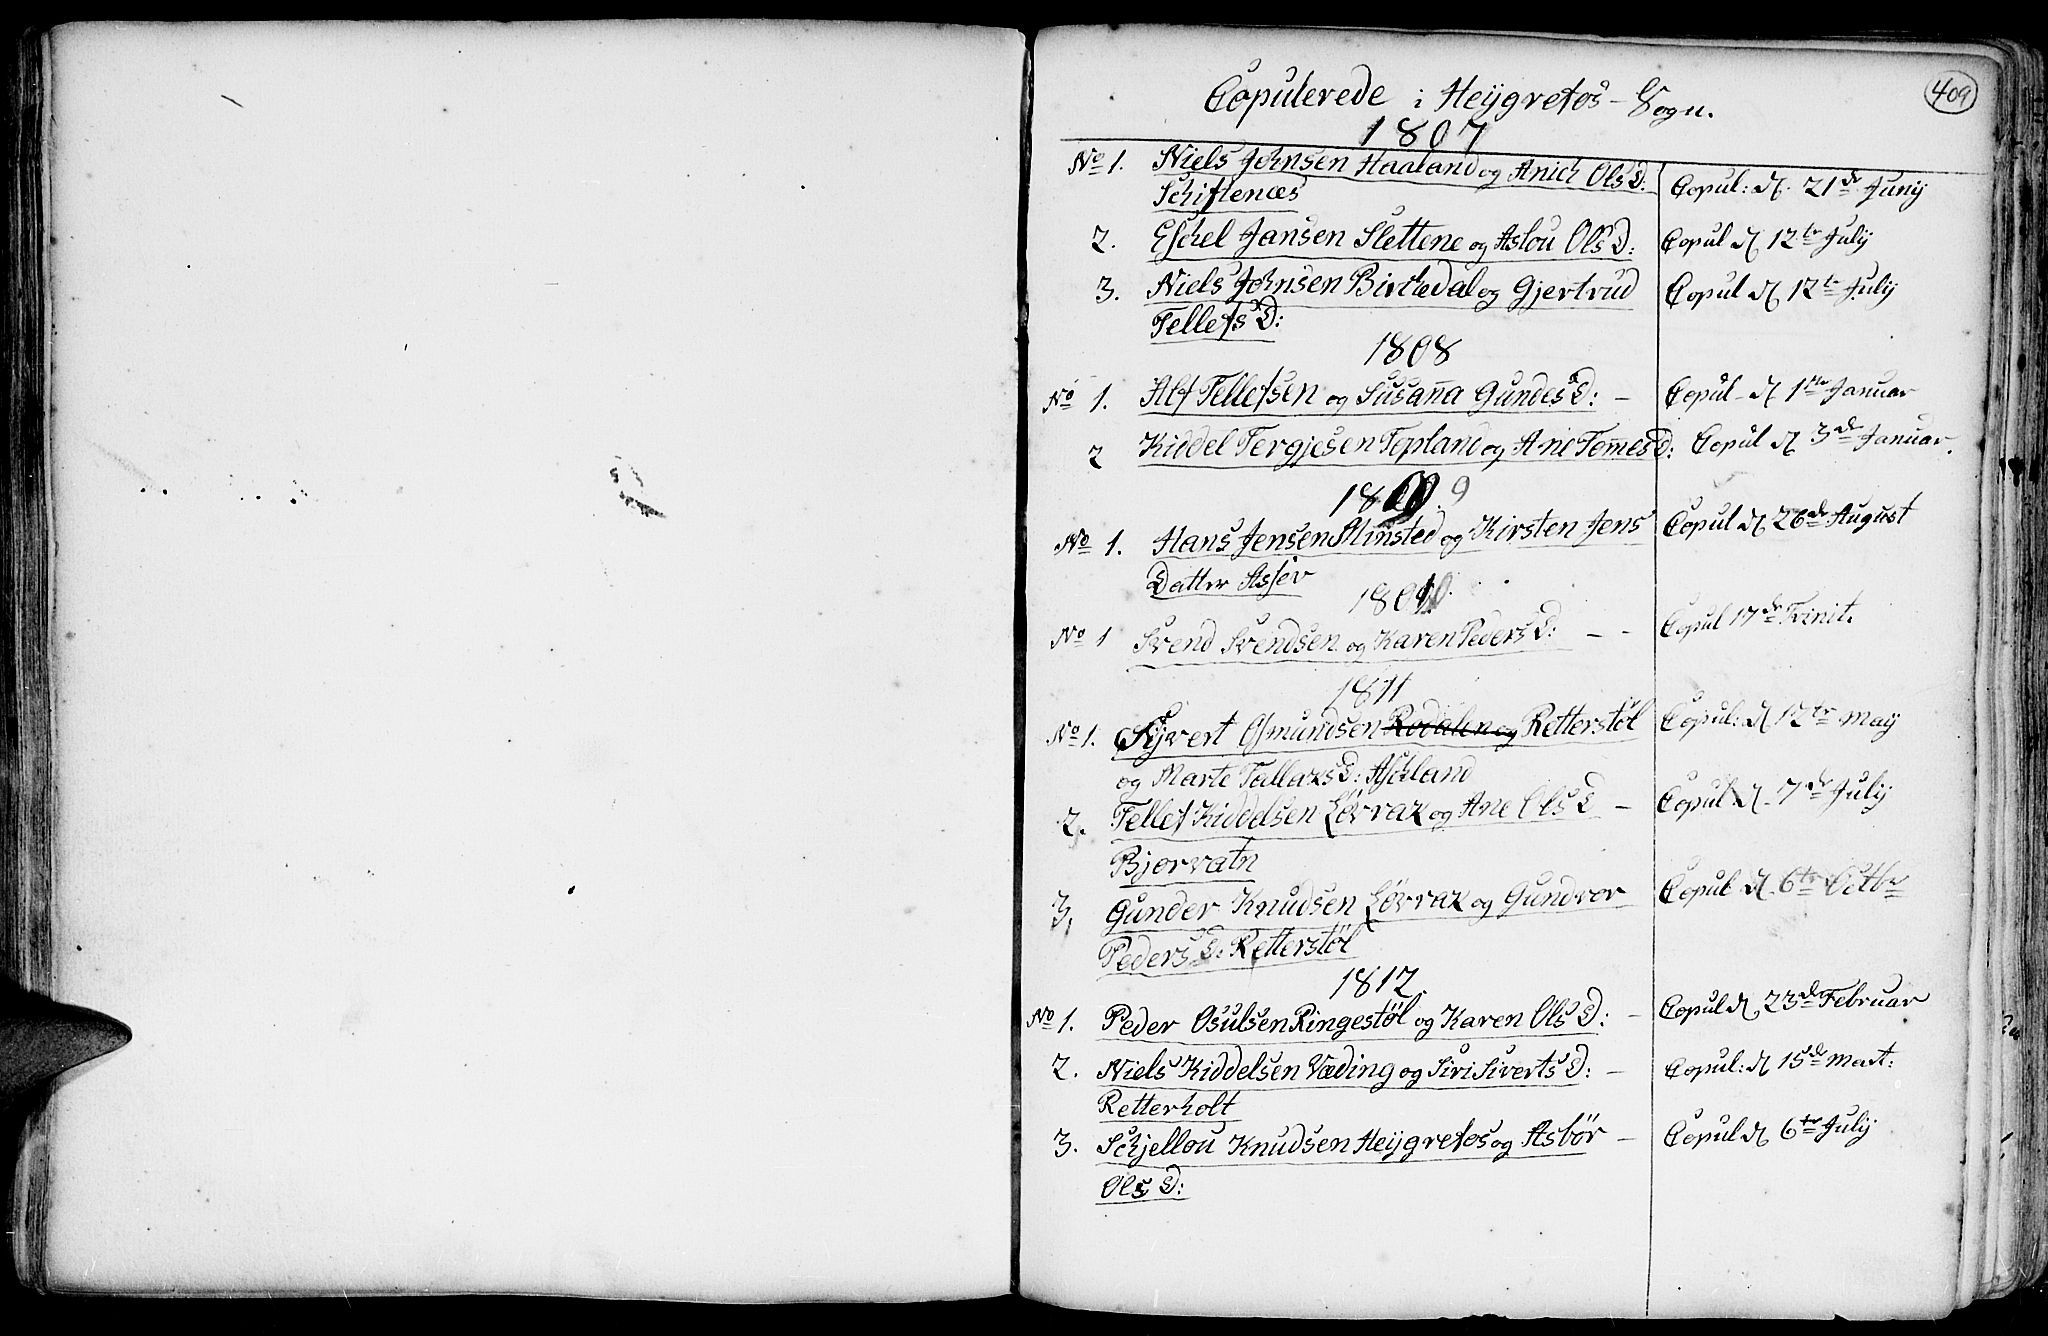 409
Copulerede i Heÿgrefos - Sogn.
1807
No 1. Niels Johnsen Haaland og Anich Ols D: Copul: d. 21de Junÿ
Schiftenæs
2. Eschel Jansen Slettene og Aslou Ols D: Copul d 12te Julÿ
3. Niels Johnsen Birchedal og Gjertrud Copul d 12te Julÿ
Tellefs D:
1808
No 1. Alf Tellefsen og Susaña Gundes D: - Copul - d 1ste Januar
2 Kiddel Tergjesen Topland og Ane Tom̄es D: Copul d 3de Januar.
1809. 9
No 1. Hans Jensen Minsted og Kirsten Jens Copul d 26de August
Datter Asfév
1810.
No 1 Svend Svendsen og Karen Peders D: - - Copul 17de Trinit.
1811
No 1. Syvert Osmundsen Rodalen og Retterstöl Copul: d 12te maÿ
og Marte Tallaks D: Aschland
2. Tellef Kiddelsen Lövrak og Ane Ols D - Copul: d. 7de Julÿ
Bjorvatn
3, Gunder Knudsen Lövrak og Gundvor Copul d. 6te Octbr
Peders D: Retterstöl
1812.
No 1. Peder Osulsen Ringestöl og Karen Ols D: - Copul d. 23de Februar
2. Niels Kiddelsen Væding og Siri Siverts D: - Copul: d 15de Mart:
Retterholt
3. Schjellou Knudsen Heÿgrefos og Asbör - Copul d 6te Julÿ
Ols D: